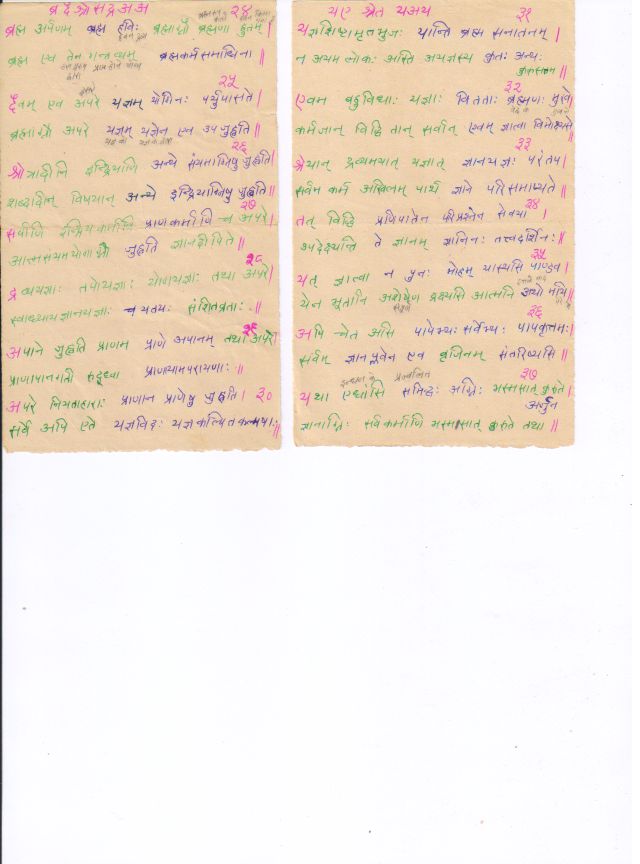 ब्र दै श्रो स द्र अ अ २४
ब्रह्म अर्पणम् ब्रह्म हविः ब्रह्माग्नौ ब्रह्मणा हुतम् |
ब्रह्म एव तेन गन्तव्यम् ब्रह्मकर्मसमाधिना ||
२५
दैवम् एव अपरे यज्ञम् योगिनः पर्युपासते |
ब्रह्माग्नौ अपरे यज्ञम् यज्ञेन एव उपजुह्वति ||
२६
श्रोत्रादीनि इन्द्रियाणि अन्ये संयमाग्निषु जुह्वति |
शब्दादीन् विषयान् अन्ये इन्द्रियाग्निषु जुह्वति ||
२७
सर्वाणि इन्द्रियकर्माणि प्राणकर्माणि च अपरे |
आत्मसंयमयोगाग्नौ जुह्वति ज्ञानदीपिते ||
२८
द्रव्ययज्ञाः तपोयज्ञाः योगयज्ञाः तथा अपरे |
स्वाध्यायज्ञानयज्ञाः च यतयः संशितव्रताः ||
२९
अपाने जुह्वति प्राणम् प्राणे अपानम् तथा अपरे |
प्राणापानगती रुद्ध्वा प्राणायामपरायणाः ||
अपरे नियताहाराः प्राणान प्राणेषु जुह्वति | ३०
सर्वे अपि एते यज्ञविदः यज्ञक्षपितकल्मषाः ||
य ए श्रे त य अ य ३१
यज्ञशिष्टामृतभुजः यान्ति ब्रह्म सनातनम् |
न अयम् लोकः अस्ति अयज्ञस्य कुतः अन्यः
कुरुसत्तम ||
३२
एवम बहुविधाः यज्ञाः वितताः ब्रह्मणः मुखे
कर्मजान् विद्धि तान् सर्वान् एवम् ज्ञात्वा विमोक्ष्यसे
३३
श्रेयान् द्रव्यमयात् यज्ञात् ज्ञानयज्ञः परंतप |
सर्वम कर्म अखिलम् पार्थ ज्ञाने परिसमाप्यते
३४
तत् विद्धि प्रणिपातेन परिप्रश्नेन सेवया |
उपदेक्ष्यन्ति ते ज्ञानम् ज्ञानिनः तत्त्वदर्शिनः ||
३५
यत् ज्ञात्वा न पुनः मोहम् यास्यसि पाण्डव |
येन भूतानि अशेषेण द्रक्ष्यसि आत्मनि अथो मयि ||
३६
अपि चेत असि पापेभ्यः सर्वेभ्यः पापकृत्तमः |
सर्वम् ज्ञानप्लवेन एव वृजिनम् संतरिष्यसि ||
३७
यथा एधांसि समिद्धः अग्निः भस्मसात् कुरुते |
अर्जुन
ज्ञानाग्निः सर्वकर्माणि भस्मसात् कुरुते तथा ||